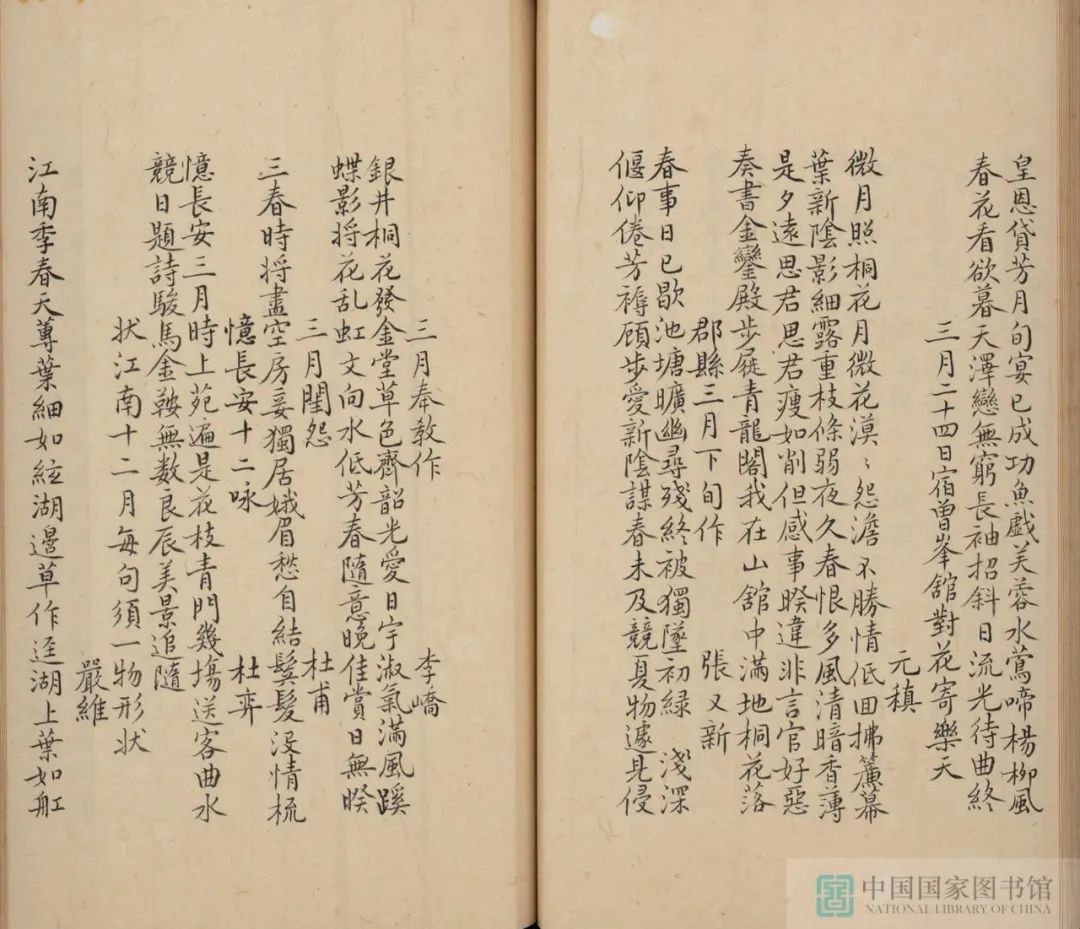 皇恩貸芳月旬宴已成功魚戲芙蓉水鶯啼楊柳風
春花看欲暮天澤戀無窮長袖招斜日流光待曲終
三月二十四日宿曾峯舘對花寄樂天
元稹
微月照桐花月微花漠〻怨澹不勝情低回拂簾幕
葉新陰影細露重枝條弱夜久春恨多風清暗香薄
是夕遠思君思君瘦如削但感事暌違非言官好惡
奏書金鑾殿步屣青龍閣我在山舘中滿地桐花落
郡縣三月下旬作 張又新
春事日已歇池塘曠幽尋殘終被獨墜初緑淺深
偃仰倦芳褥顧步愛新陰謀春未及競夏物遽見侵
三月奉教作 李嶠
銀井桐花發金堂草色齊韶光愛日宇淑氣滿風蹊
蝶影将花乱虹文向水低芳春隨意晚佳賞日無暌
三月閨怨 杜甫
三春時将盡空房妾獨居娥眉愁自結鬂髮没情梳
憶長安十二咏 杜弈
憶長安三月時上苑遍是花枝青門幾塲送客曲水
競日題詩駿馬金鞍無数良辰美景追隨
状江南十二月每句須一物形状
嚴維
江南季春天蓴葉細如絃湖邊草作逕湖上葉如舡
中国国家图书馆
NATIONAL LIBRARY OF CHINA